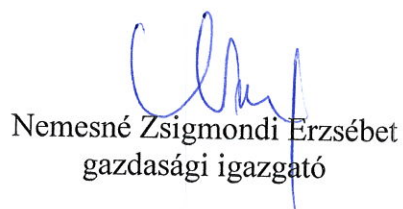 Nemesné Zsigmondi Erzsébet
gazdasági igazgató